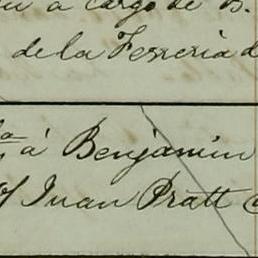 á cargo de B.
de la Ferreria d
á Benjamin
Juan Pratt